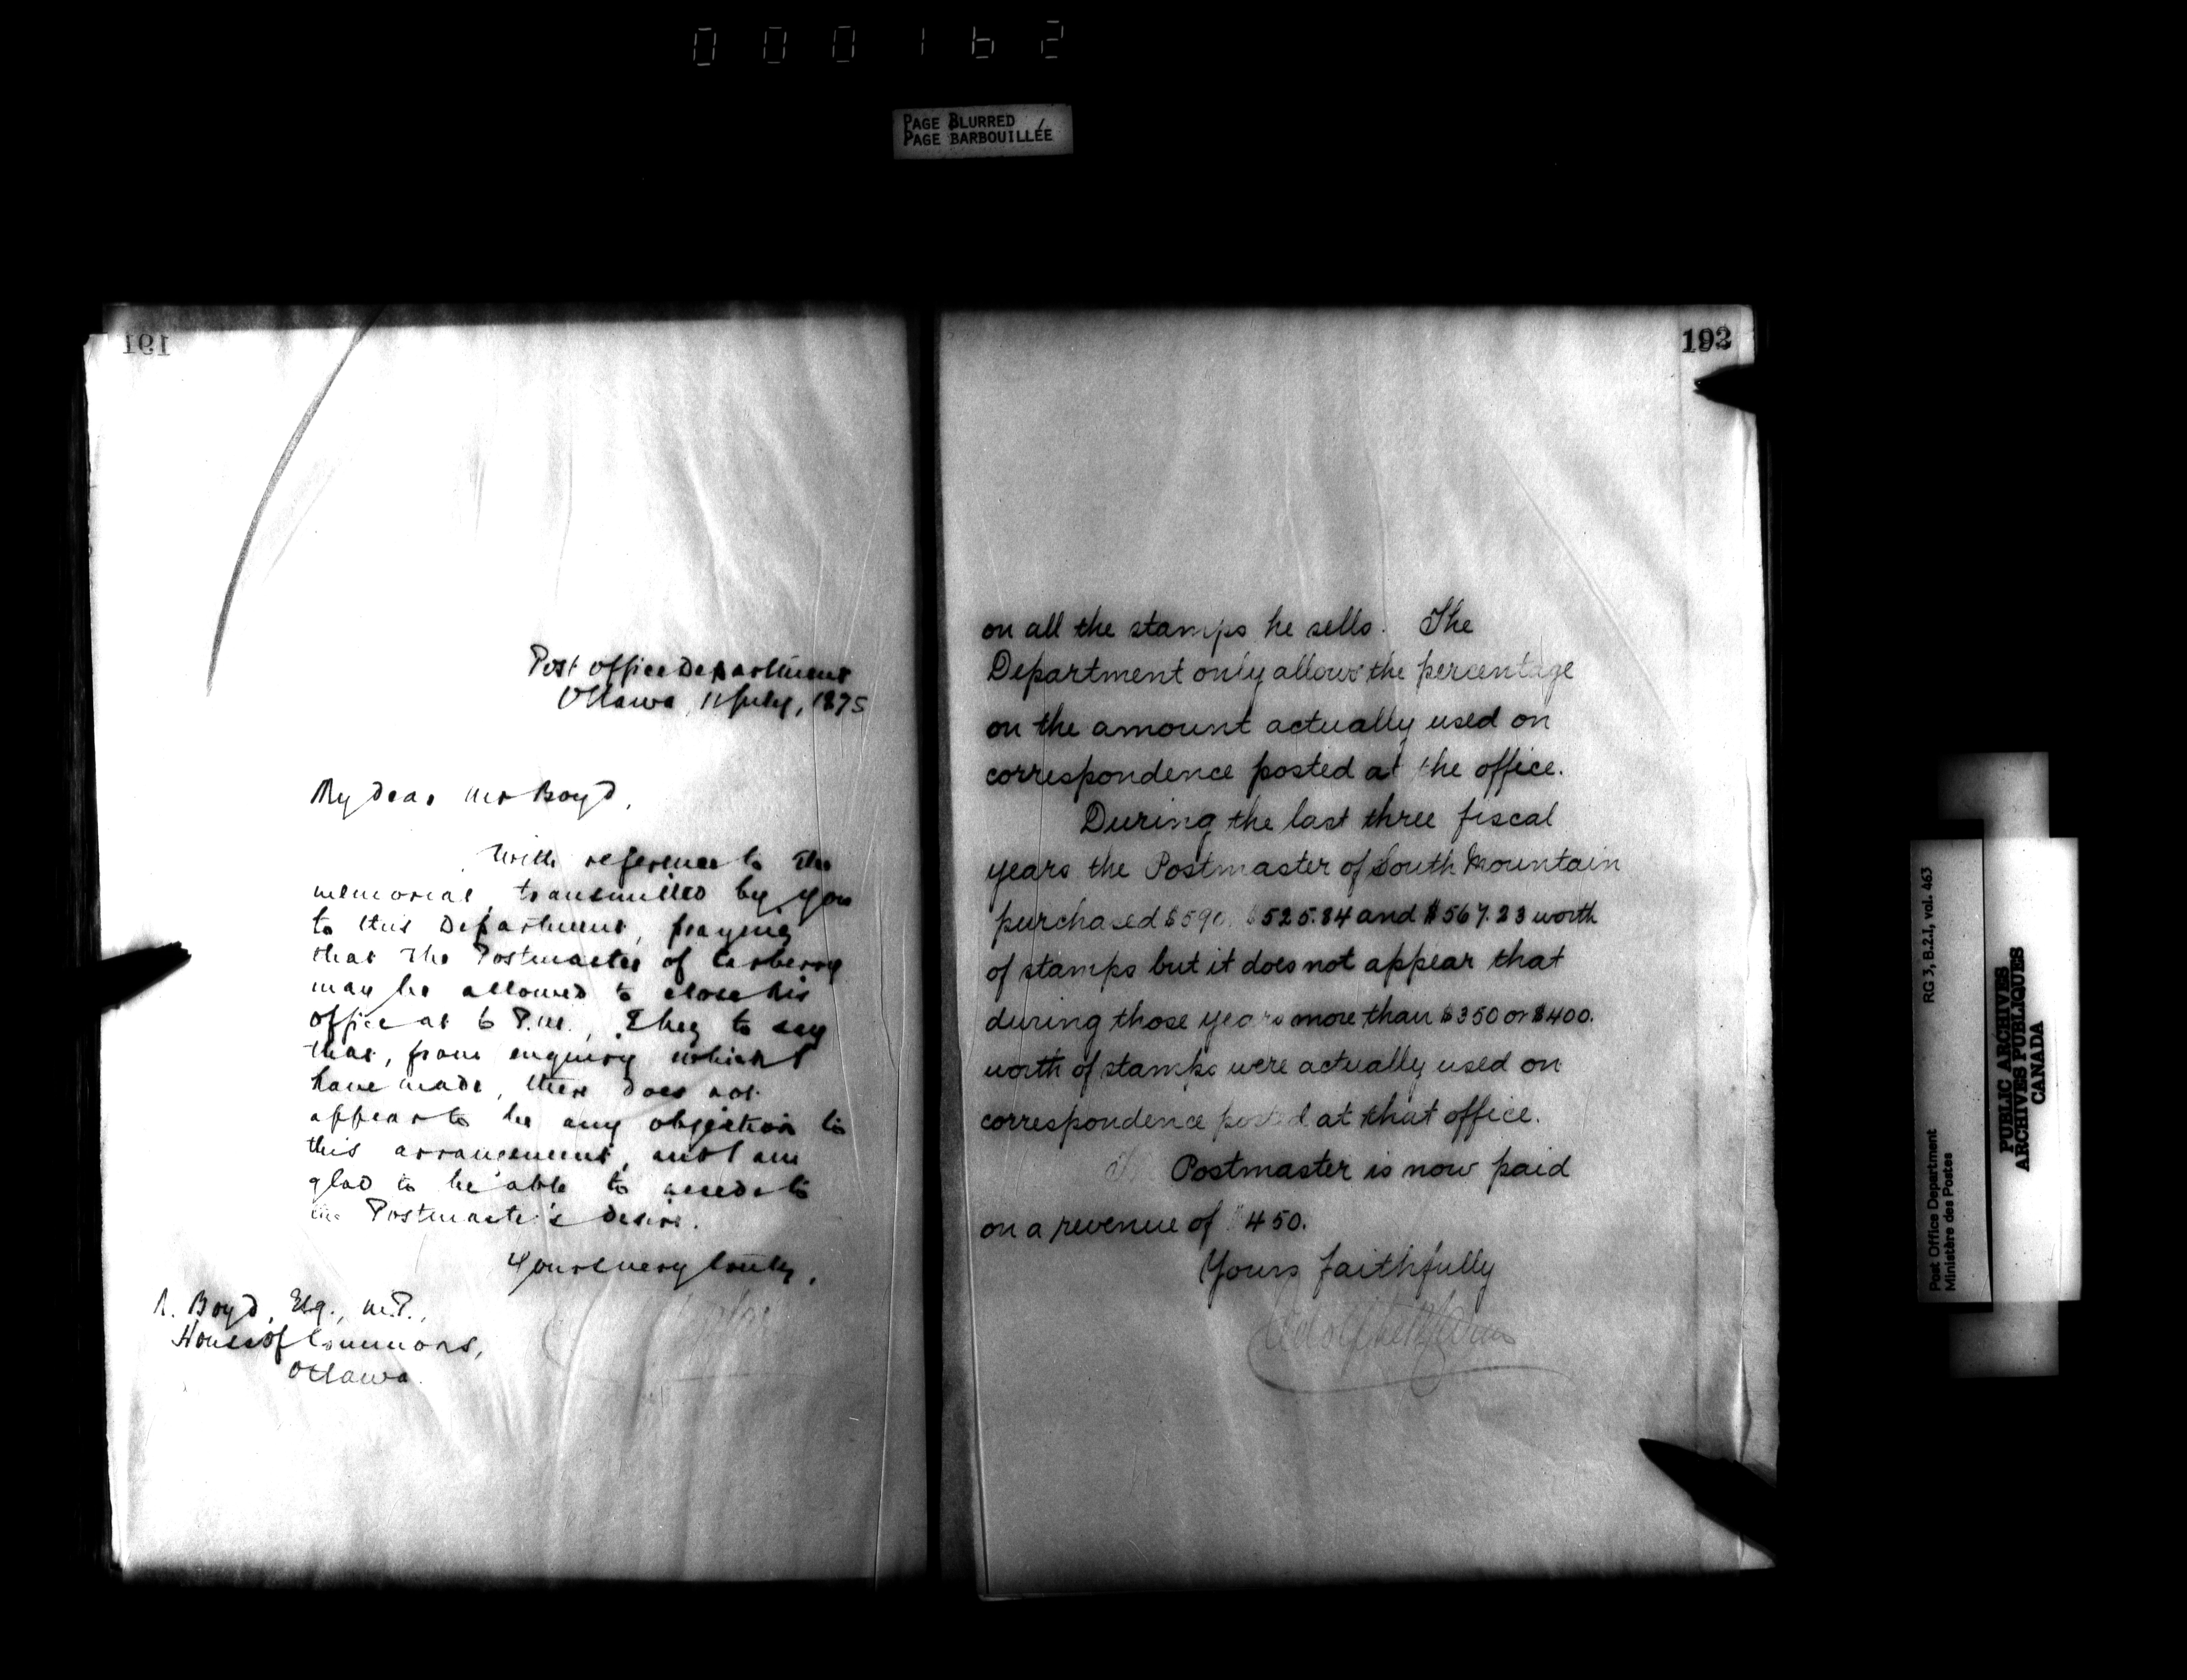 000162
PAGE BLURRED
PAGE BARBOUILLÉE
191
Post Office Department
Ottawa, 11 July, 1875
My dear Mr Boyd,
With reference to the
memorial transmitted by you
to this Department, praying
that the Postmaster of Carberry
may be allowed to close his
office at 6 P.M., I beg to say
that, from enquiry which I
have made, there does not
appear to be any objection to
this arrangement, and I am
glad to be able to accede to
the Postmaster's desire.
Yours very truly,
Boyd, Esq., M.P.,
House of Commons,
Ottawa.
193
on all the stamps he sells. The
Department only allows the percentage
on the amount actually used on
correspondence posted at the office.
During the last three fiscal
years the Postmaster of South Mountain
purchased $590. $525.84 and $567.23 worth
of stamps but it does not appear that
during those years more than $350 or $400.
worth of stamps were actually used on
correspondence posted at that office.
Postmaster is now paid
on a revenue of $450.
Yours faithfully
Post Office Department
Ministère des Postes
RG 3, B.2.1, vol. 463
PUBLIC ARCHIVES
ARCHIVES PUBLIQUES
CANADA